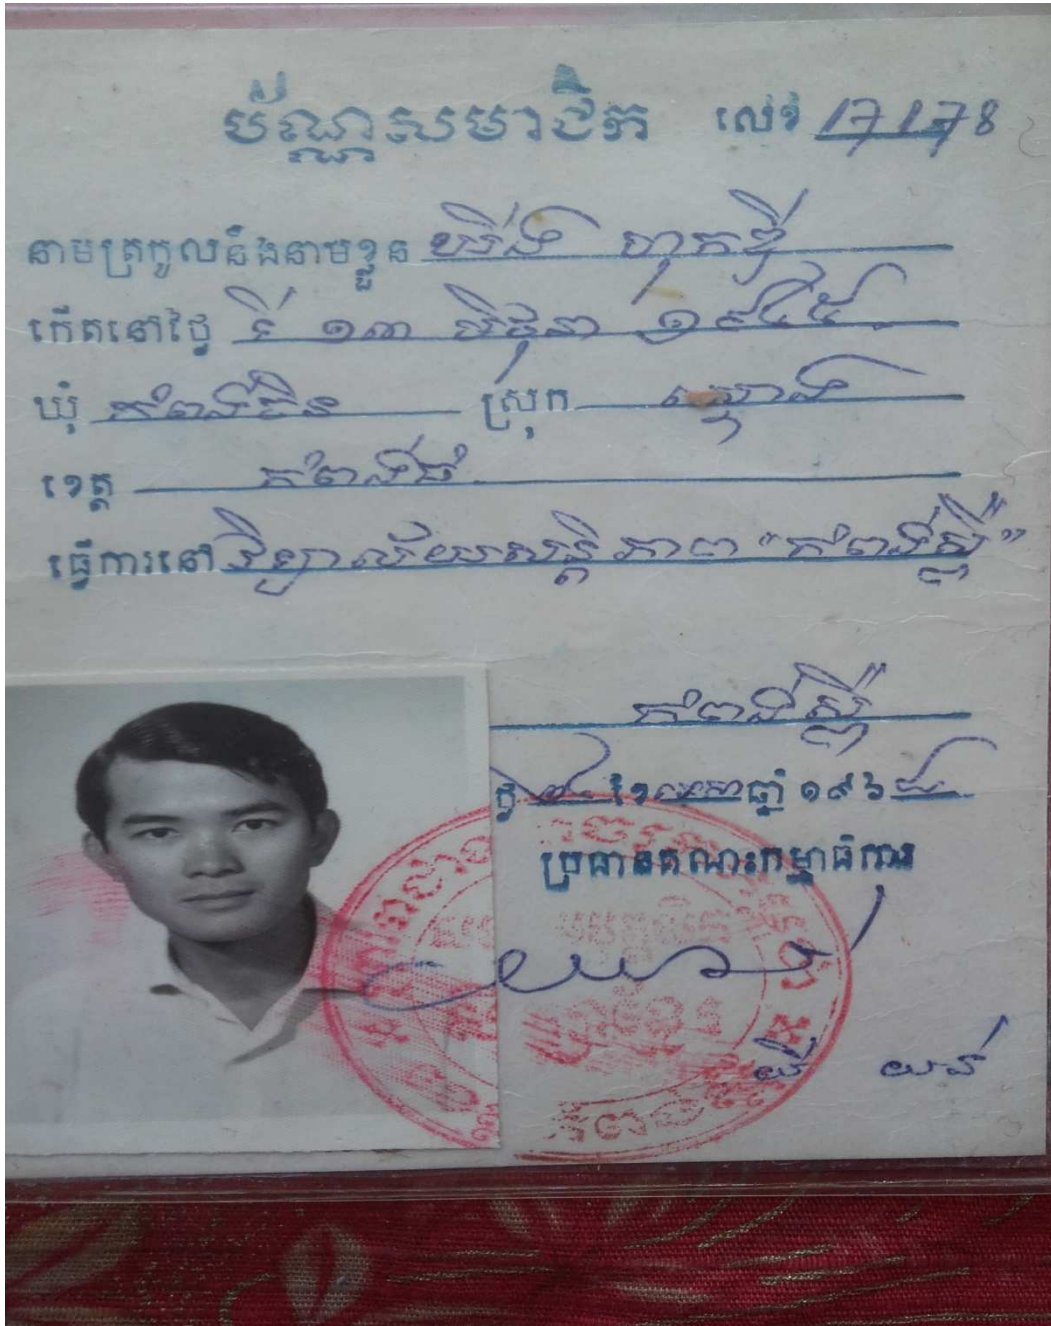 ប័ណ្ណសមាជិក លេខ 17178
នាមត្រកូលនិងនាមខ្លួន យ៉ើង ហុកឌី
កើតនៅថ្ងៃ ទី ១៣ មិថុនា ១៩៤៥
ឃុំ កំពង់ចិន ស្រុក ស្ទោង
ខេត្ត កំពង់ធំ
ធ្វើការនៅ វិទ្យាល័យសន្តិភាព "កំពង់ស្ពឺ"
កំពង់ស្ពឺ
ថ្ងៃ ខែ ឆ្នាំ ១៩៦
ប្រធានគណះកម្មាធិការ